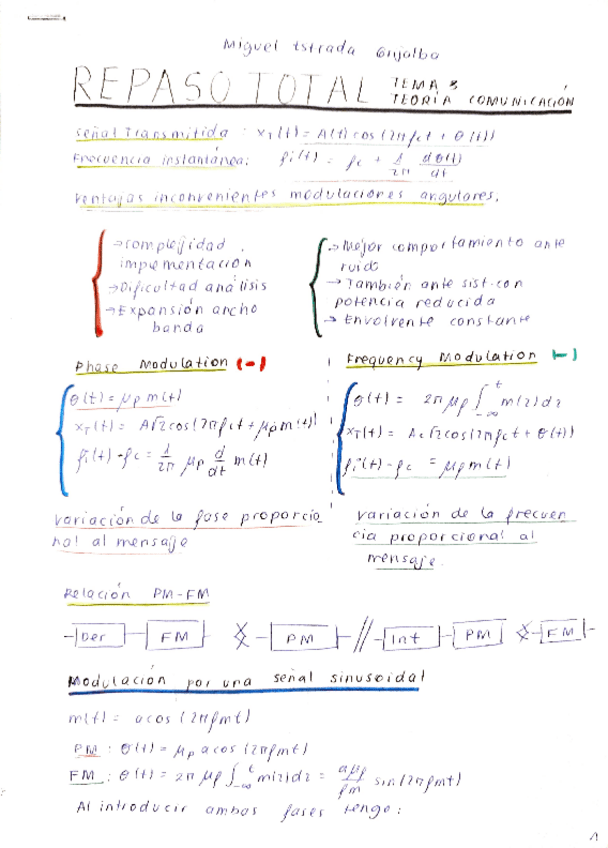 Miguel Estrada Grijalba
REPASO TOTAL TEMA 3
TEORÍA COMUNICACIÓN
Señal Transmitida : x_T(t) = A(t) cos (2πfct + θ(t))
Frecuencia instantánea: fi(t) = fc + 1/2π dθ(t)/dt
Ventajas inconvenientes modulaciones angulares.
→ complejidad
implementación
→ Dificultad análisis
→ Expansión ancho
banda
→ Mejor comportamiento ante
ruido
→ También ante sist. con
potencia reducida
→ Envolvente constante
Phase Modulation (-)
θ(t) = μp m(t)
x_T(t) = A√2 cos(2πfct + μp m(t))
fi(t) - fc = 1/2π μp d/dt m(t)
variación de la fase proporcio
nal al mensaje
Frequency Modulation (-)
θ(t) = 2π μf ∫_{-∞}^{t} m(z) dz
x_T(t) = Ac√2 cos(2πfct + θ(t))
fi(t) - fc = μf m(t)
variación de la frecuen
cia proporcional al
mensaje.
Relación PM-FM
Der FM PM // Int PM FM
Modulación por una señal sinusoidal
m(t) = a cos (2πfmt)
PM : θ(t) = μp a cos (2πfmt)
FM : θ(t) = 2π μf ∫_{-∞}^{t} m(z) dz = aμf/fm sin (2πfmt)
Al introducir ambas fases tengo:
1